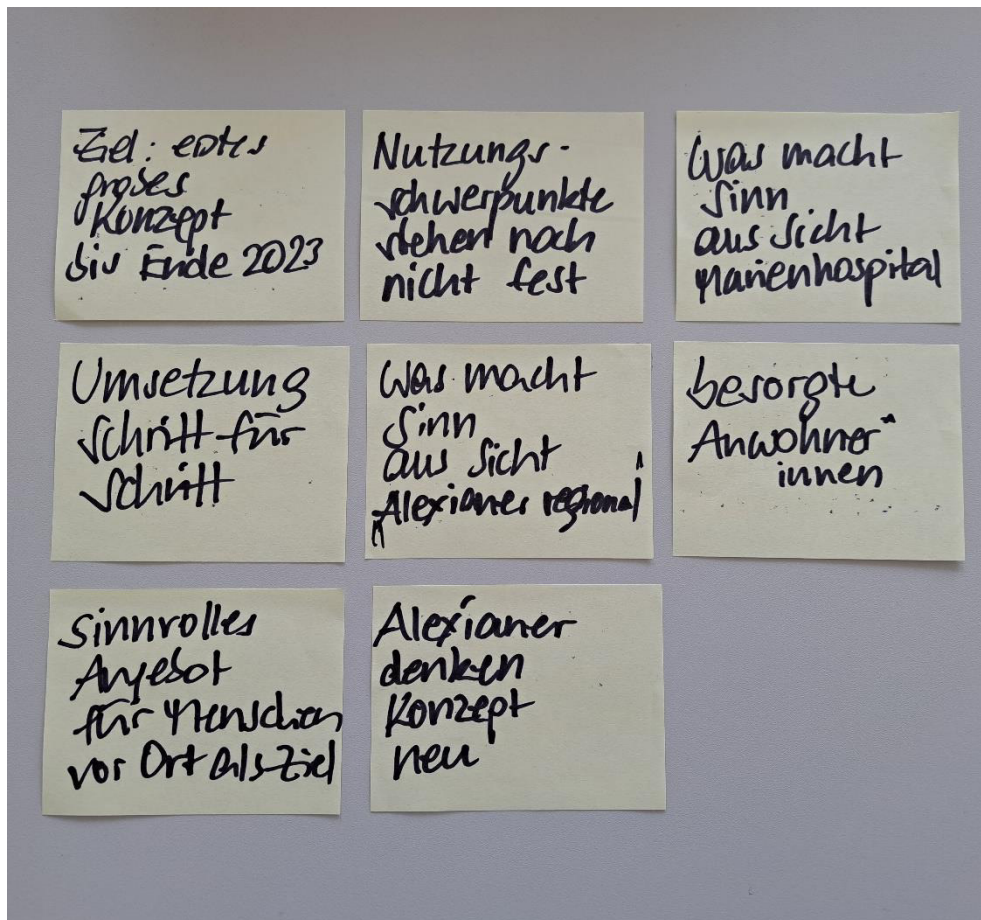 Ziel: erstes
großes
Konzept
bis Ende 2023
Nutzungs-
schwerpunkte
stehen noch
nicht fest
Was macht
Sinn
aus Sicht
Marienhospital
Umsetzung
Schritt für
Schritt
Was macht
Sinn
aus Sicht
Alexianer regional
besorgte
Anwohner*
innen
sinnvolles
Angebot
für Menschen
vor Ort als Ziel
Alexianer
denken
Konzept
neu